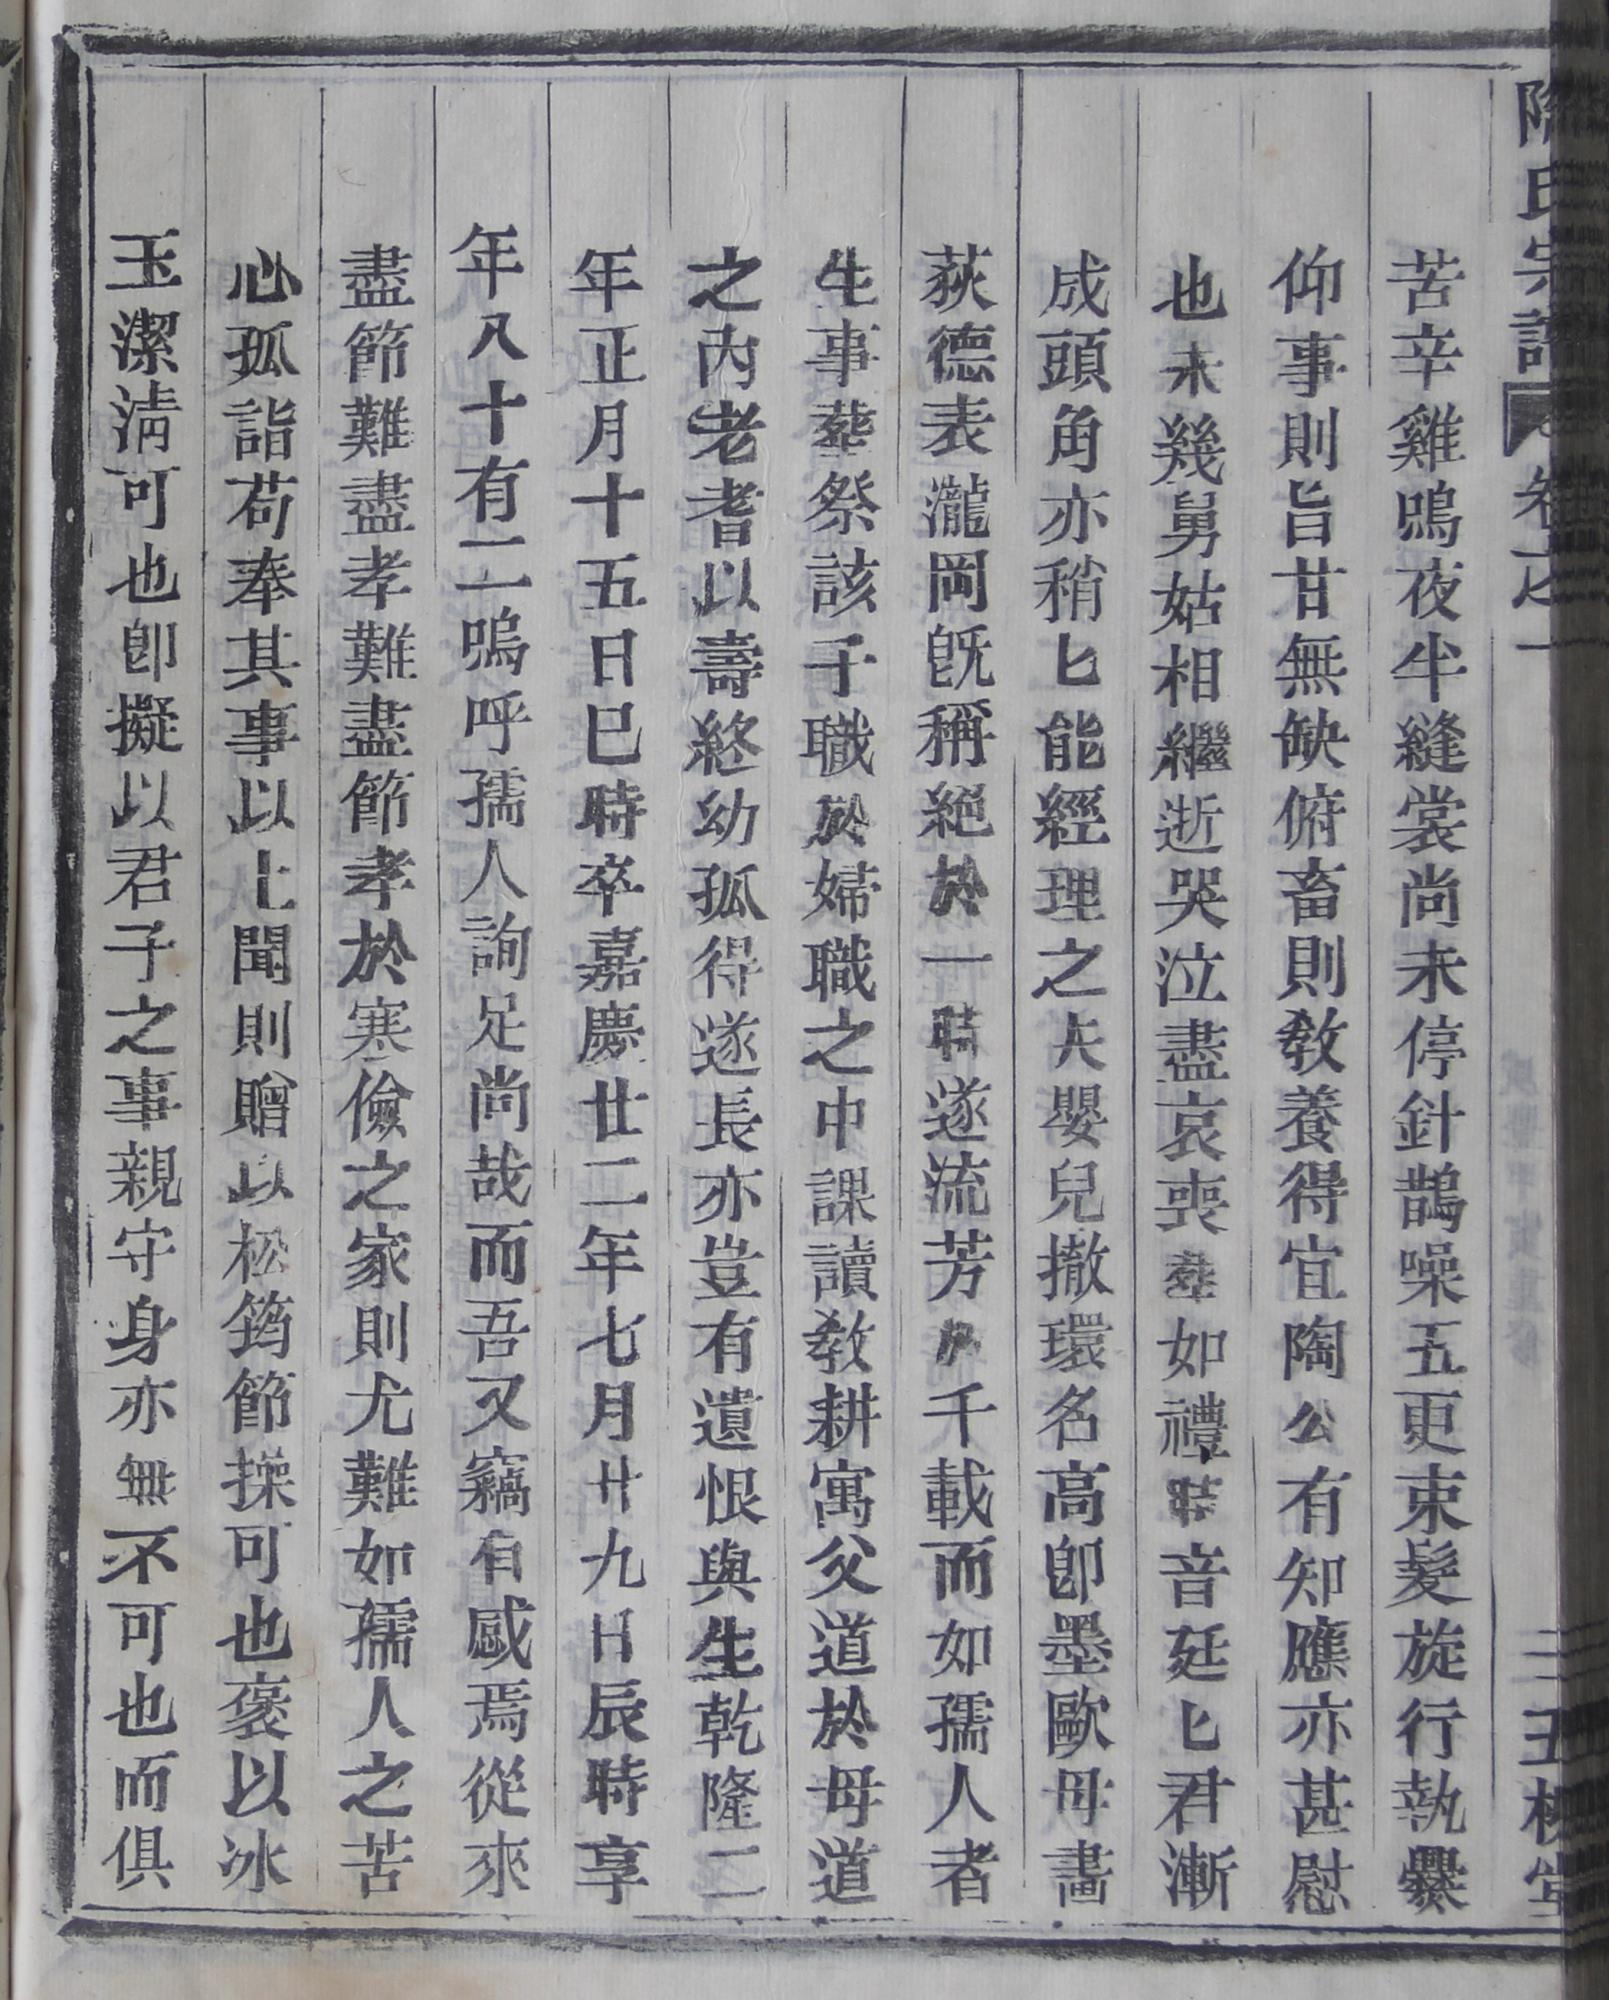 陶氏宗譜 卷之一 三 五柳堂
苦辛雞鳴夜半縫裳尚未停針鵲噪五更束髮旋行執爨
仰事則旨甘無缺俯畜則敎養得宜陶公有知應亦甚慰
也未幾舅姑相繼逝哭泣盡哀喪葬如禮時音廷匕君漸
成頭角亦稍匕能經理之夫嬰兒撤環名高卽墨歐母畵
荻德表瀧岡旣稱絕於一時遂流芳於千載而如孺人者
生事葬祭該子職於婦職之中課讀敎耕寓父道於母道
之內老耆以壽終幼孤得遂長亦豈有遺恨與生乾隆二
年正月十五日巳時卒嘉慶廿二年七月廿九日辰時享
年八十有二嗚呼孺人詢足尚哉而吾又竊有感焉從來
盡節難盡孝難盡節孝於寒儉之家則尤難如孺人之苦
心孤詣苟奉其事以上聞則贈以松筠節操可也褒以冰
玉潔淸可也卽擬以君子之事親守身亦無不可也而俱